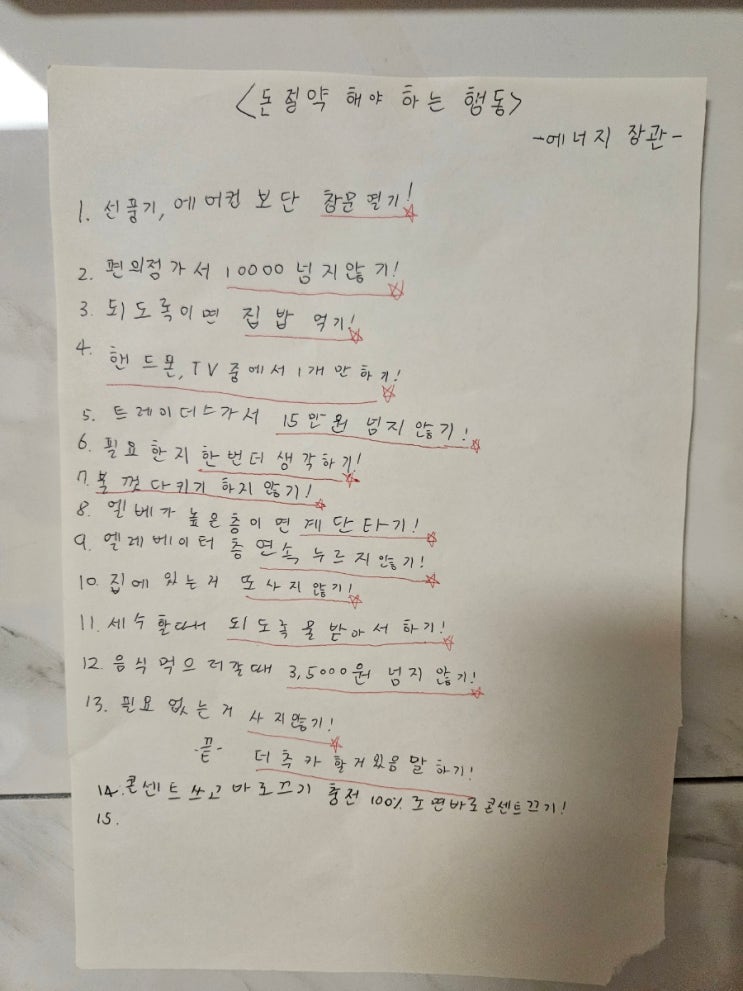 <돈절약 해야 하는 행동>
-에너지 장관-
1. 선풍기, 에어컨 보단 창문 열기!
2. 편의점가서 10000 넘지않기!
3. 되도록이면 집밥 먹기!
4. 핸드폰, TV 중에서 1개만하기!
5. 트레이더스가서 15만원 넘지않기!
6. 필요한지 한번더 생각하기!
7. 불 껏다키기 하지않기!
8. 엘베가 높은층이면 계단타기!
9. 엘레베이터 층 연속 누르지않기!
10. 집에 있는거 또 사지않기!
11. 세수할때 되도록 물 받아서 하기!
12. 음식 먹으러갈때 3,5000원 넘지않기!
13. 필요없는거 사지않기!
-끝-
더 추가 할거있음 말하기!
14. 콘센트 쓰고 바로끄기 충전 100% 되면바로콘센트끄기!
15.